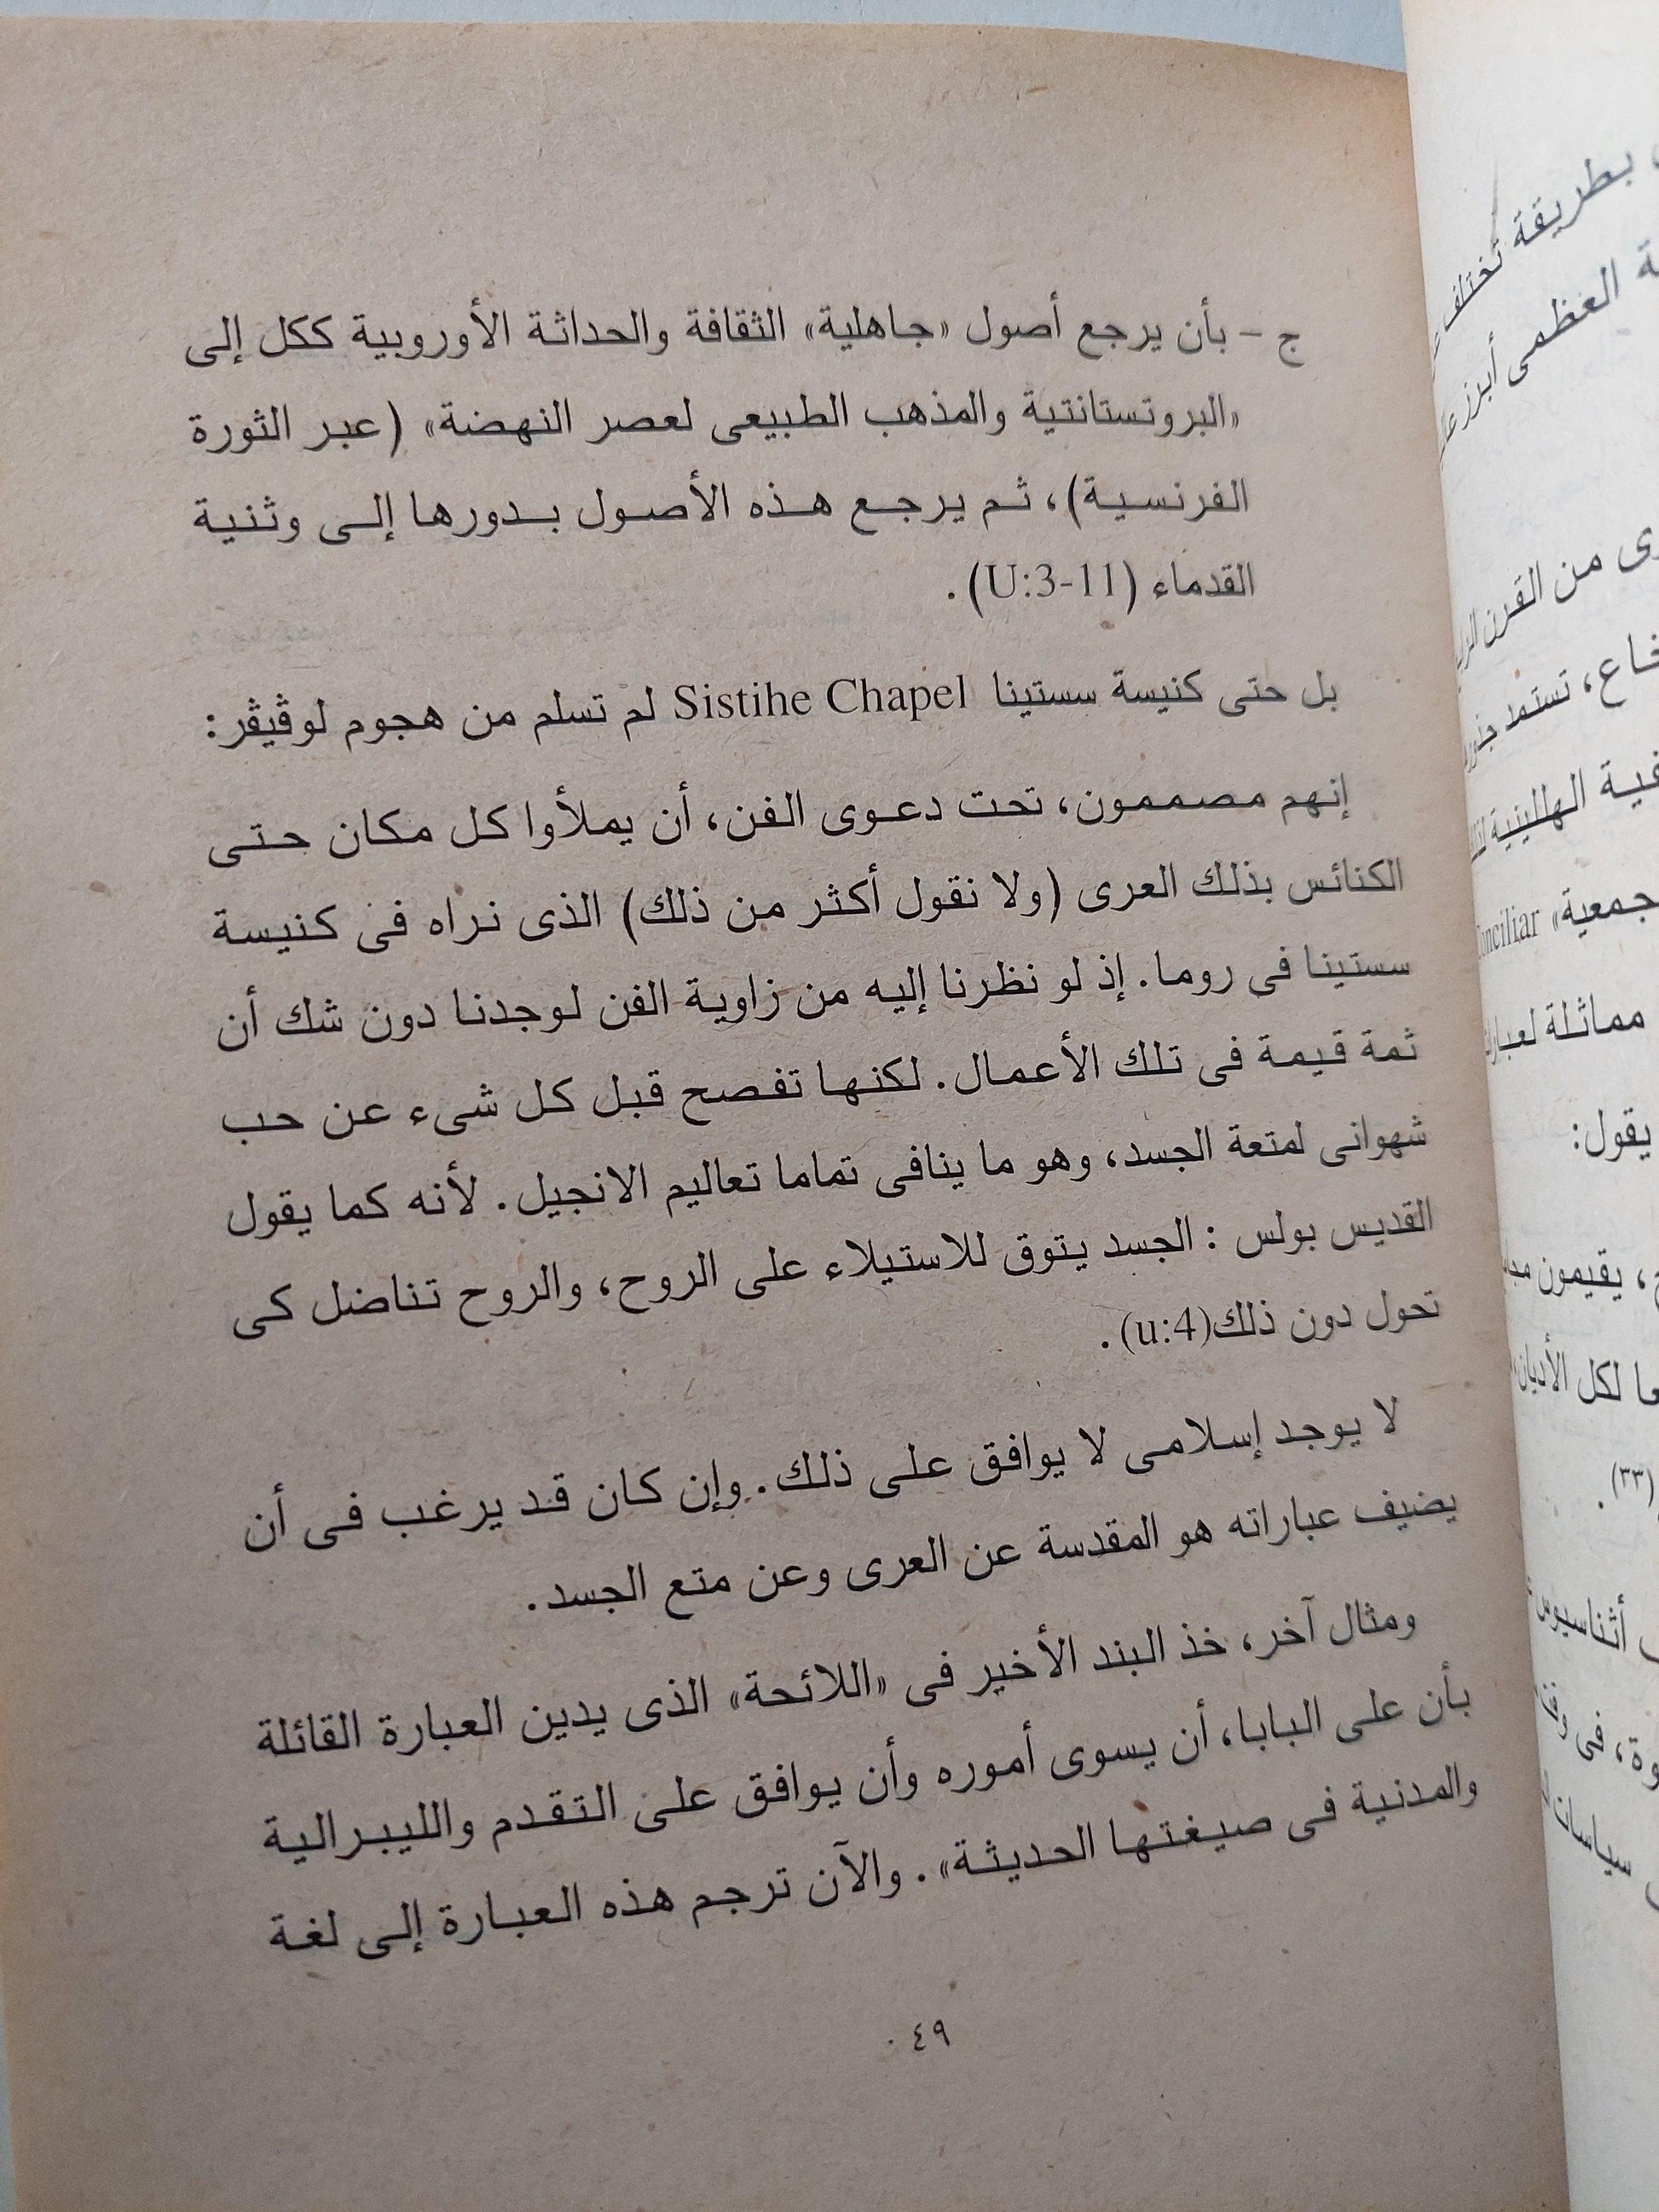 ج - بأن يرجع أصول «جاهلية» الثقافة والحداثة الأوروبية ككل إلى
«البروتستانتية والمذهب الطبيعى لعصر النهضة» (عبر الثورة
الفرنسية)، ثم يرجع هذه الأصول بدورها إلى وثنية
القدماء (U:3-11).
بل حتى كنيسة سستينا Sistihe Chapel لم تسلم من هجوم لوڤيڤر:
إنهم مصممون، تحت دعوى الفن، أن يملأوا كل مكان حتى
الكنائس بذلك العرى (ولا نقول أكثر من ذلك) الذى نراه فى كنيسة
سستينا فى روما. إذ لو نظرنا إليه من زاوية الفن لوجدنا دون شك أن
ثمة قيمة فى تلك الأعمال. لكنها تفصح قبل كل شىء عن حب
شهوانى لمتعة الجسد، وهو ما ينافى تماما تعاليم الانجيل. لأنه كما يقول
القديس بولس : الجسد يتوق للاستيلاء على الروح، والروح تناضل كى
تحول دون ذلك(u:4).
لا يوجد إسلامى لا يوافق على ذلك. وإن كان قد يرغب فى أن
يضيف عباراته هو المقدسة عن العرى وعن متع الجسد.
ومثال آخر، خذ البند الأخير فى «اللائحة» الذى يدين العبارة القائلة
بأن على البابا، أن يسوى أموره وأن يوافق على التقدم والليبرالية
والمدنية فى صيغتها الحديثة». والآن ترجم هذه العبارة إلى لغة
٤٩
بطريقة تختلف
العظمى أبرز
من القرن
تستمد
الهللينية
جمعية»
مماثلة
يقول:
يقيمون
لكل الأديان
(٣٣).
أثناسيوس
فى
سياسات